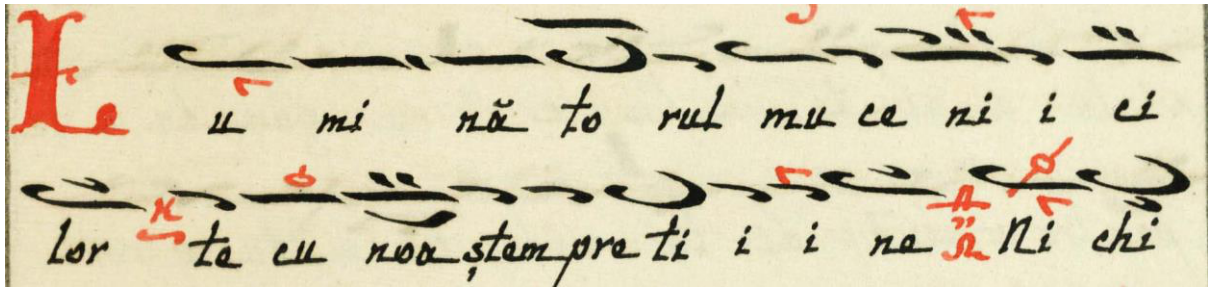 Le u mi nă to rul mu ce ni i ci
lor te cu noa ștem pre ti i i ne Ni chi